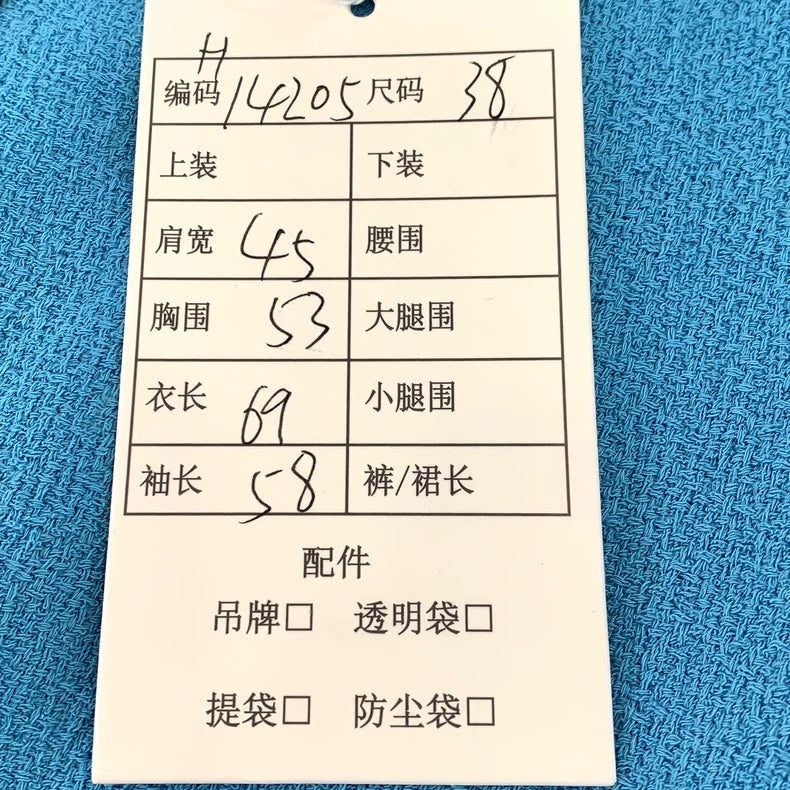 H
编码 14205 尺码 38
上装 下装
肩宽 45 腰围
胸围 53 大腿围
衣长 69 小腿围
袖长 58 裤/裙长
配件
吊牌□ 透明袋□
提袋□ 防尘袋□